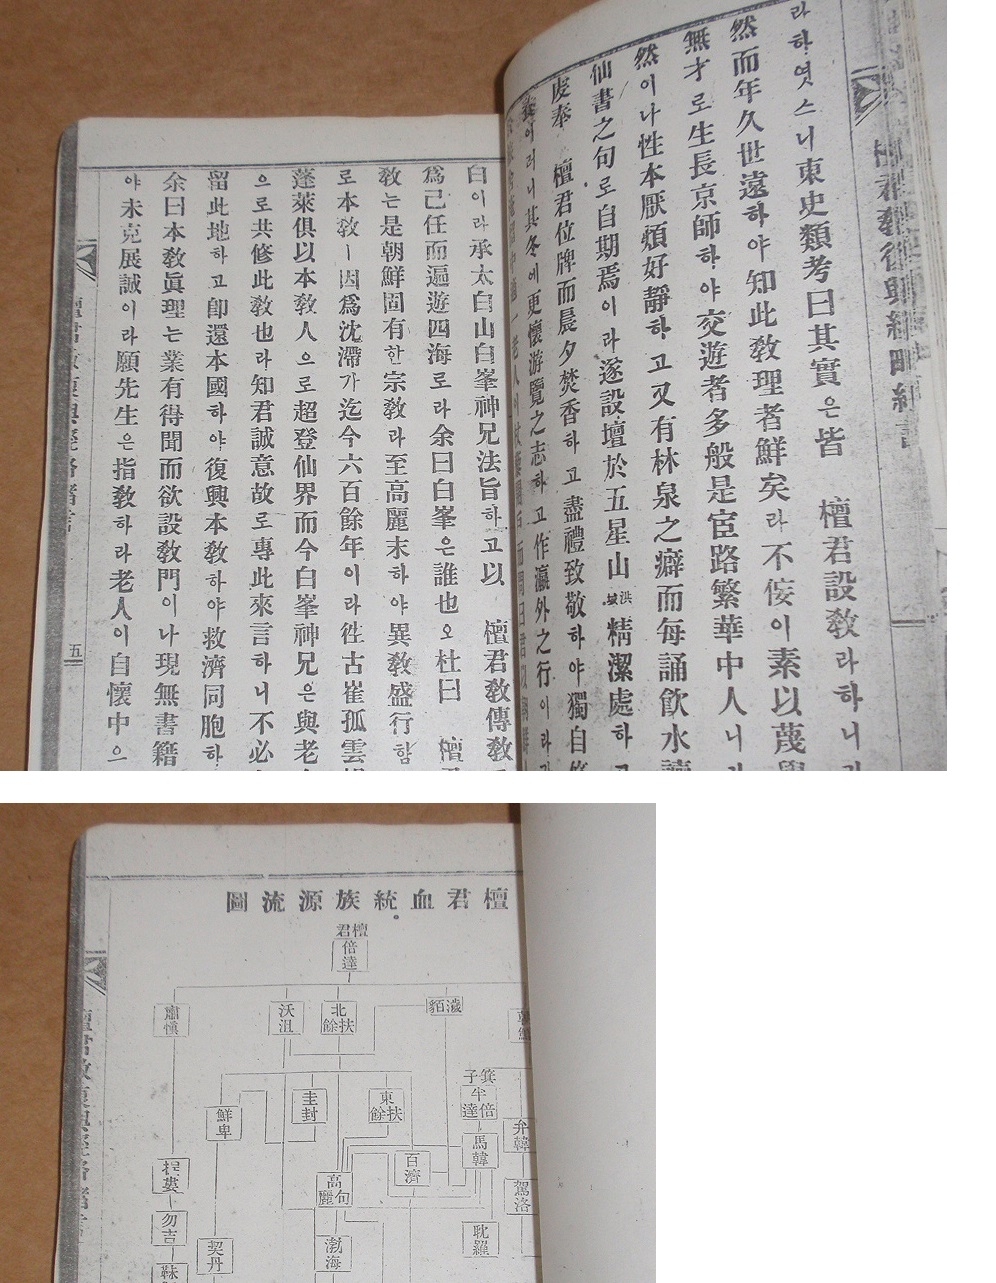 檀君教復興經略
라하엿스니東史類考曰其實은皆 檀君設教라하니
然而年久世遠하야知此教理者鮮矣라不侫이素以蔑學
無才로生長京師하야交遊者多般是宦路繁華中人니
然이나性本厭煩好靜하고又有林泉之癖而每誦飲水讀
仙書之句로自期焉이라遂設壇於五星山洪城精潔處하고
虔奉 檀君位牌而晨夕焚香하고盡禮致敬하야獨自
이러니其冬에更懷游覽之志하고作瀛外之行이라
白이라承太白山白峯神兄法旨하고以 檀君教傳教
爲己任而遍遊四海로라余曰白峯은誰也오杜曰 檀
教는是朝鮮固有한宗教라至高麗末하야異教盛行함
로本教ㅣ因爲沈滯가迄今六百餘年이라徃古崔孤雲
蓬萊俱以本教人으로超登仙界而今白峯神兄은與老
으로共修此教也라知君誠意故로專此來言하니不必
留此地하고卽還本國하야復興本教하야救濟同胞하
余曰本教眞理는業有得聞而欲設教門이나現無書籍
야未克展誠이라願先生은指教하라老人이自懷中으
五
檀君血統族源流圖
檀君
倍達
肅愼
沃沮
北扶餘
濊貊
朝鮮
箕子
半倍達
鮮卑
圭封
東扶餘
馬韓
弁韓
挹婁
高句麗
百濟
駕洛
勿吉
契丹
渤海
耽羅